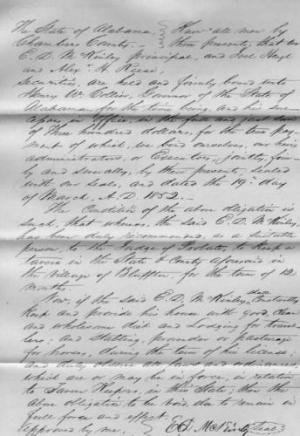 The State of Alabama } Know all men by
Chambers County } these presents, that we
E. D. McKinley Principal, and Joel
and Alex. H. Reese,
Securities, are held and firmly bound unto
Henry W. Collier, Governor of the State of
Alabama for the time being, and his suc
cessors, in Office, in the full and just sum
of three hundred dollars, for the true pay
ment of which, we bind ourselves, our heirs
administrators, or Executors, jointly, firm
ly and severally, by these presents, sealed
with our seals, and dated the 19th day
of March, A. D. 1852.
The Condition of the above obligation is
such, that whereas, the said E. D. McKinley,
has been duly recommended, as a suitable
person, to the Judge of Probate, to keep a
tavern in the State & County aforesaid in
the village of Bluffton, for the term of 12
months.
Now, if the said E. D. McKinley shall constantly
keep and provide his house with good, clean
and wholesome diet and Lodging for travel
lers; and Stabling, provender or pasturage
for horses, during the term of his license;
and duly observe all laws and ordinances,
which are or may be in force, in relation
to Tavern Keepers, in this State; then the
above obligation to be void, else to remain in
full force and effect.
Approved by me, E. D. McKinley {Seal}